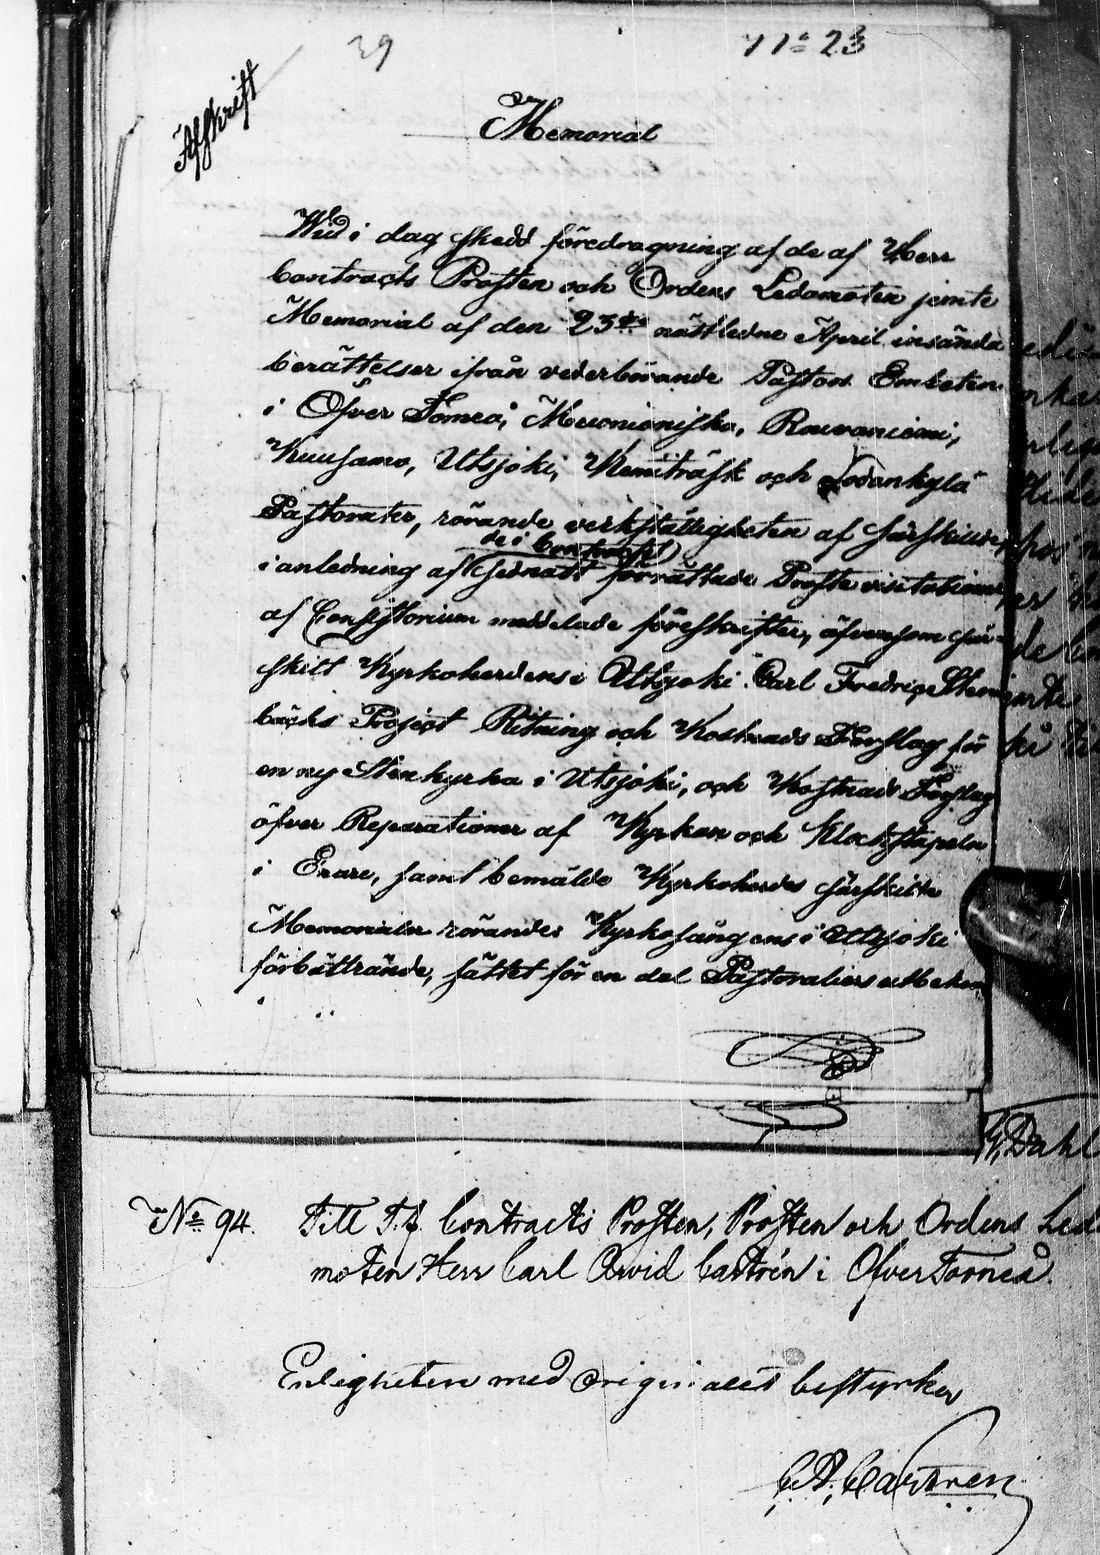 39
N:o 23
Afskrift
Memorial
Wid i dag skedd föredragning af de af Herr
Contracts Prosten och Ordens Ledamoten jemte
Memorial af den 23de nästledne April insända
berättelser ifrån vederbörande Pastors Embeten
i Öfver Torneå, Muonioniska, Rouvaniemi,
Kuusamo, Utsjoki, Kemiträsk och Sodankylä
Pastorater, rörande verkställigheten af särskilde,
de i Contractet
i anledning af sednast förrättade Proste visitationer
af Consistorium meddelade föreskrifter, äfvensom sär-
skilt Kyrkoherdens i Utsjoki Carl Fredric Sten
bäcks Project Ritning och Kostnads Förslag för
en ny Stenkyrka i Utsjoki, och Kostnads Förslag
öfver Reparationer af Kyrkan och Klockstapeln
i Enare, samt bemälde Kyrkoherdes särskilte
Memorialer rörandes Kyrkosångens i Utsjoki
förbättrande, sättet för en del Pastoraliers utbekom
G. Dahl
N:o 94. Till T.f. Contracts Prosten, Prosten och Ordens Leda
moten Herr Carl Arvid Castrén i Öfver Torneå.
Enligheten med originalet bestyrker
C. A. Castrén